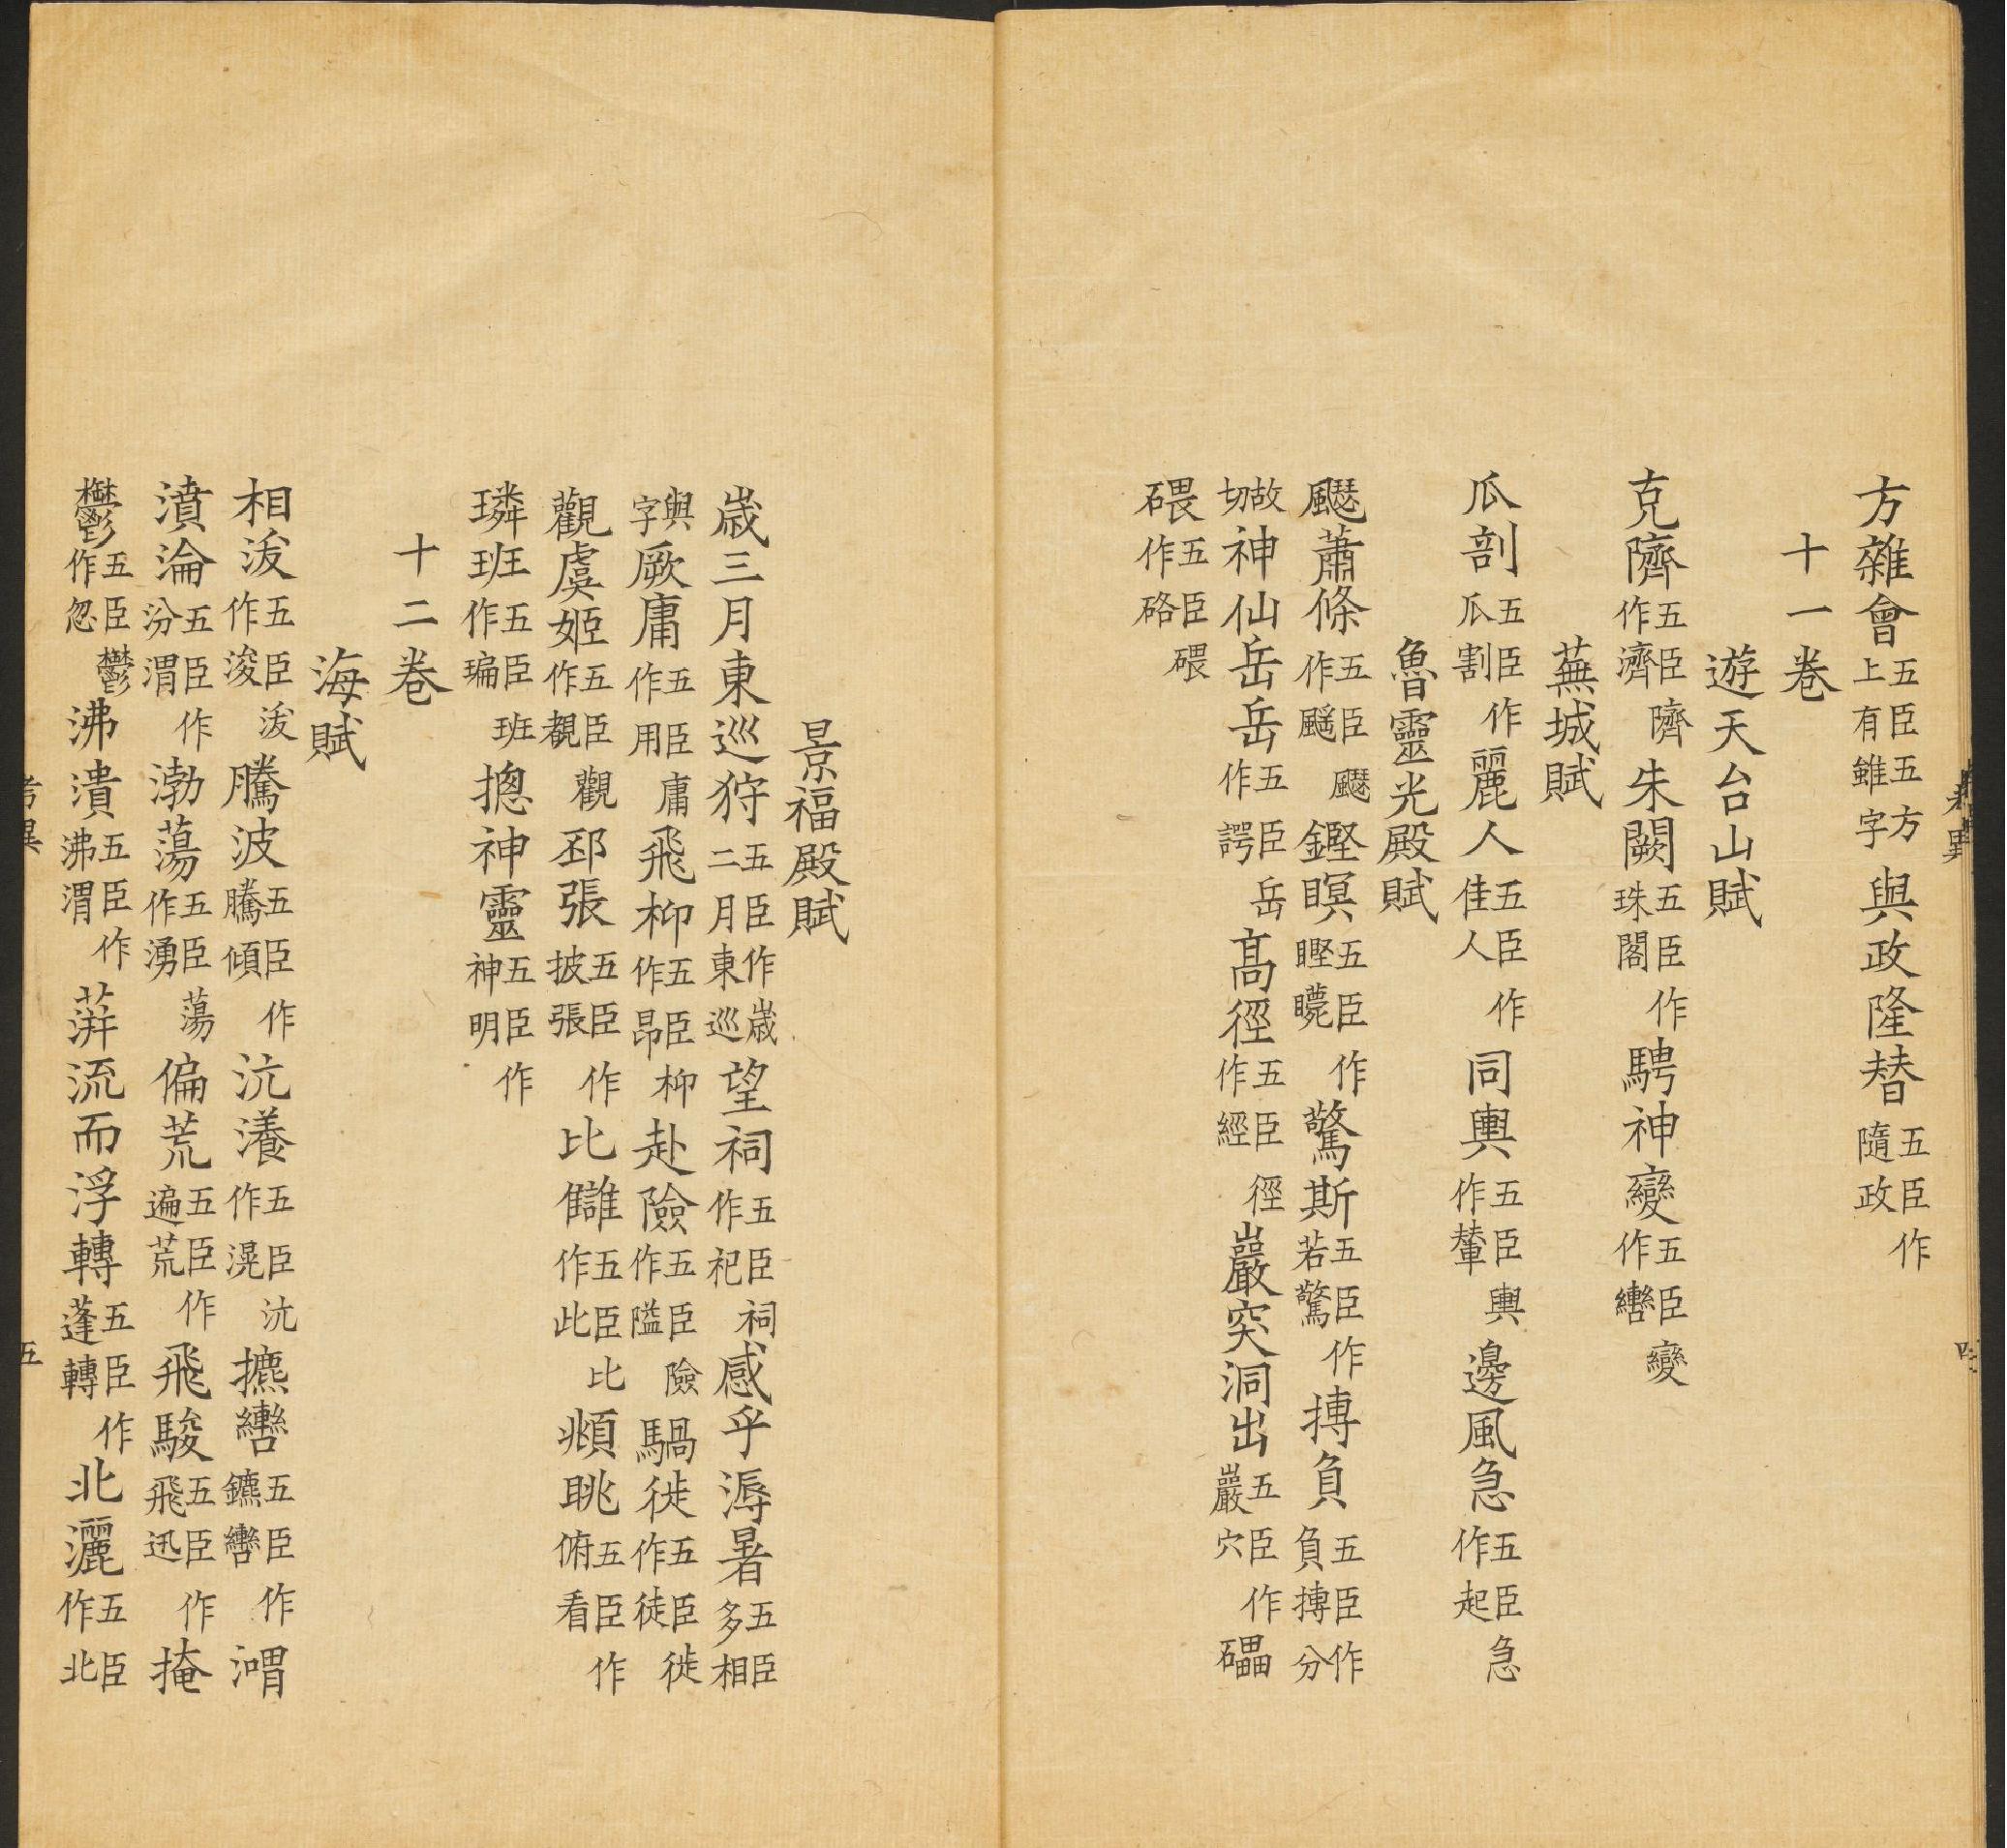 方雜會五臣五方上有雖字與政隆替五臣作隨政
十一卷
遊天台山賦
克隮五臣隮作濟朱闕五臣作珠閣騁神變五臣變作轡
蕪城賦
瓜剖五臣作瓜割麗人五臣作佳人同輿五臣輿作輦邊風急五臣急作起
魯靈光殿賦
飋蕭條五臣飋作颼鏗瞑五臣作瞘矎驚斯五臣作若驚摶負五臣作負摶分
故切神仙岳岳五臣岳作諤高徑五臣徑作經巖突洞出五臣作巖穴礧
碨五臣碨作硌
景福殿賦
歲三月東巡狩五臣作歲二月東巡望祠五臣祠作祀感乎溽暑五臣多相
與字厥庸五臣庸作用飛柳五臣柳作昂赴險五臣險作隘騧徙五臣徙作徒
觀虞姬五臣觀作覩邳張五臣作披張比讎五臣比作此頫眺五臣作俯看
璘班五臣班作㻞摠神靈五臣作神明
十二卷
海賦
相沷五臣沷作浚騰波五臣作騰傾沆瀁五臣沆作滉攠轡五臣作鑣轡㵒
濆淪五臣作汾渭渤蕩五臣蕩作湧偏荒五臣作遍荒飛駿五臣作飛迅掩
鬱五臣鬱作忽沸潰五臣作沸渭蓱流而浮轉五臣作蓬轉北灑五臣作北
考異
五